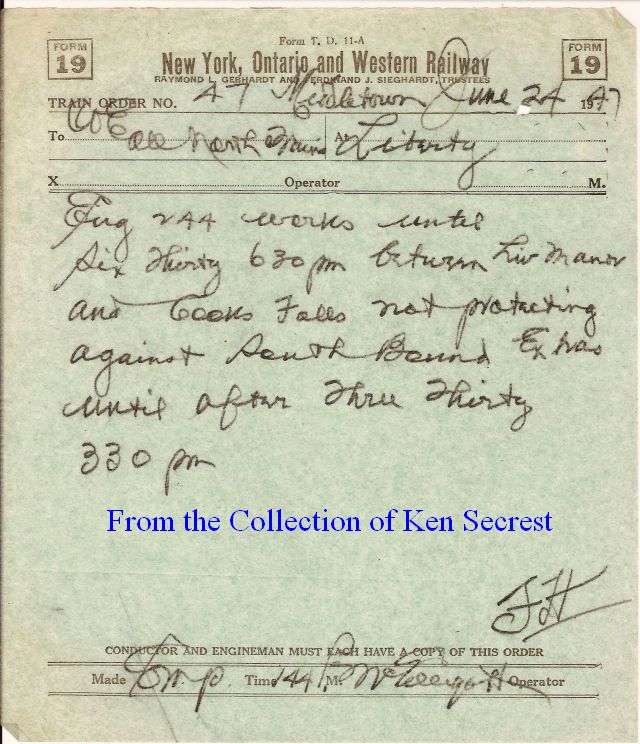 Form T. D. 11-A
FORM 19
New York, Ontario and Western Railway
FORM 19
RAYMOND L. GEBHARDT AND FERDINAND J. SIEGHARDT, TRUSTEES
TRAIN ORDER NO. 47 Middletown June 24 1947
To All North Trains At Liberty
X Operator M.
Eng 244 works until
Six Thirty 630 pm between Liv Manor
and Cooks Falls not protecting
against South Bound Extras
until after Three Thirty
330 pm
From the Collection of Ken Secrest
CONDUCTOR AND ENGINEMAN MUST EACH HAVE A COPY OF THIS ORDER
Made Time 144 P M. Operator